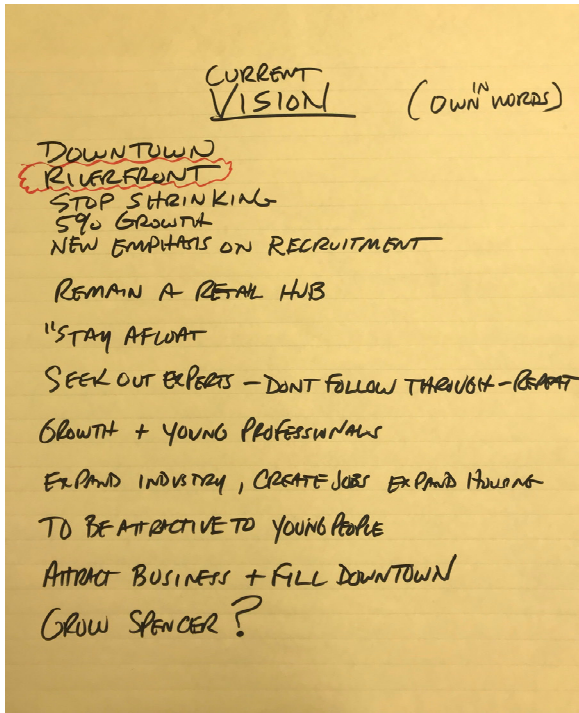 CURRENT
VISION
(IN OWN WORDS)
DOWNTOWN
RIVERFRONT
STOP SHRINKING
5% GROWTH
NEW EMPHASIS ON RECRUITMENT
REMAIN A RETAIL HUB
"STAY AFLOAT
SEEK OUT EXPERTS - DONT FOLLOW THROUGH - REPEAT
GROWTH + YOUNG PROFESSIONALS
EXPAND INDUSTRY, CREATE JOBS EXPAND HOUSING
TO BE ATTRACTIVE TO YOUNG PEOPLE
ATTRACT BUSINESS + FILL DOWNTOWN
GROW SPENCER?